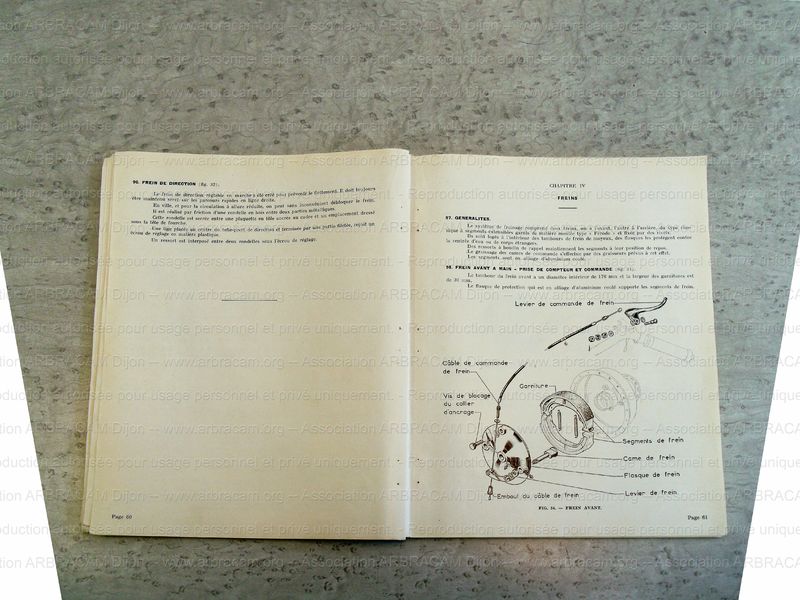 96. FREIN DE DIRECTION (fig. 32).
Le frein de direction réglable en marche a été créé pour prévenir le flottement. Il doit toujours
être maintenu serré sur les parcours rapides en ligne droite.
En ville, et pour la circulation à allure réduite, on peut sans inconvénient débloquer le frein.
Il est réalisé par friction d'une rondelle en bois entre deux parties métalliques.
Cette rondelle est serrée entre une plaquette en tôle ancrée au cadre et un emplacement dressé
sous la tête de fourche.
Une tige placée au centre du tube-pivot de direction et terminée par une partie filetée, reçoit un
écrou de réglage en matière plastique.
Un ressort est interposé entre deux rondelles sous l'écrou de réglage.
Page 60
CHAPITRE IV
FREINS
97. GENERALITES.
Le système de freinage comprend deux freins, un à l'avant, l'autre à l'arrière, du type
à segments extensibles garnis de matière moulée type « Férodo » et fixée par des rivets.
Ils sont logés à l'intérieur des tambours de frein de moyeux, des flasques les protègent contre
la rentrée d'eau ou de corps étrangers.
Des ressorts à boudin de rappel maintiennent les segments à leur position de repos.
Le graissage des cames de commande s'effectue par des graisseurs prévus à cet effet.
Les segments sont en alliage d'aluminium coulé.
98. FREIN AVANT A MAIN - PRISE DE COMPTEUR ET COMMANDE
Le tambour du frein avant a un diamètre intérieur de 178 mm et la largeur des garnitures est
de 30 mm.
Le flasque de protection qui est en alliage d'aluminium coulé supporte les segments de frein.
Levier de commande de frein
Câble de commande
de frein
Garniture
Vis de blocage
du collier
d'ancrage
Segments de frein
Came de frein
Flasque de frein
Levier de frein
Embout du câble de frein
FIG. 34. — FREIN AVANT.
Page 61
www.arbracam.org -- Association ARBRACAM Dijon
Reproduction autorisée pour usage personnel et privé uniquement.